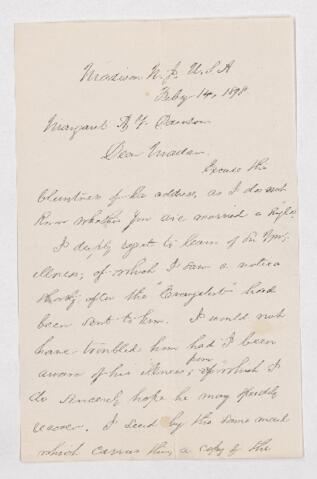 Madison N. J. U. S. A
Feby 14, 1898.
Margaret A. Y.
Dear Madam
Excuse the
bluntness of the address, as I do not
know whether you are married or single
I deeply regret to learn of Sir Wm's
illness; of which I saw a notice
shortly after the "Evangelist" had
been sent to him. I would not
have troubled him had I been
aware of his illness, from which I
do sincerely hope he may speedily
recover. I send by the same mail
which carries this, a copy of the